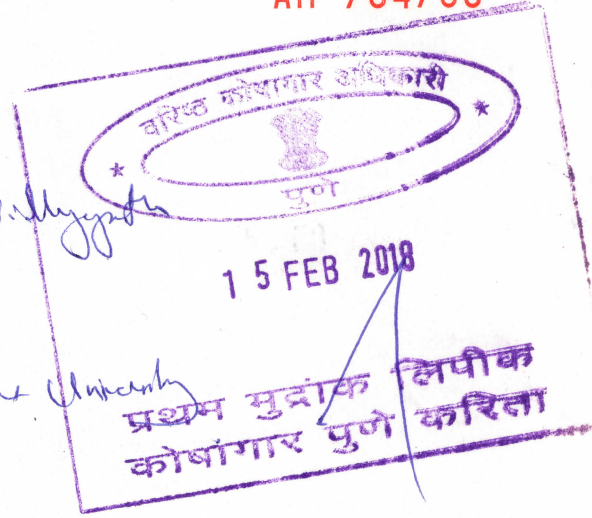 वरिष्ठ कोषागार अधिकारी
पुणे
15 FEB 2018
University
प्रथम मुद्रांक लिपीक
कोषांगार पुणे करिता